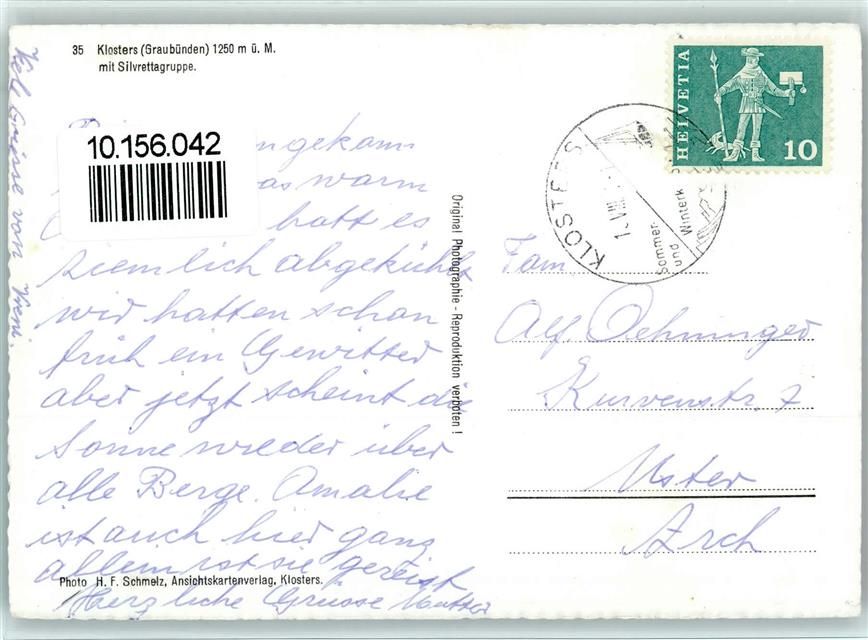 35 Klosters (Graubünden) 1250 m ü. M.
mit Silvrettagruppe.
10.156.042
ngekam
as warm
hatt es
ziemlich abgekühlt
wir hatten schon
früh ein Gewitter
aber jetzt scheint die
Sonne wieder über
alle Berge. Amalie
ist auch hier ganz
allein ist sie gereist
Herzliche Grüsse Mutter
Viele Grüsse von Vreni.
Photo H. F. Schmelz, Ansichtskartenverlag, Klosters.
Original Photographie - Reproduktion verboten !
HELVETIA
10
KLOSTERS
1. VIII.
Sommer-
und Winterk
Fam
Alf. Oehninger
Kurvenstr. 7
Uster
Zrch